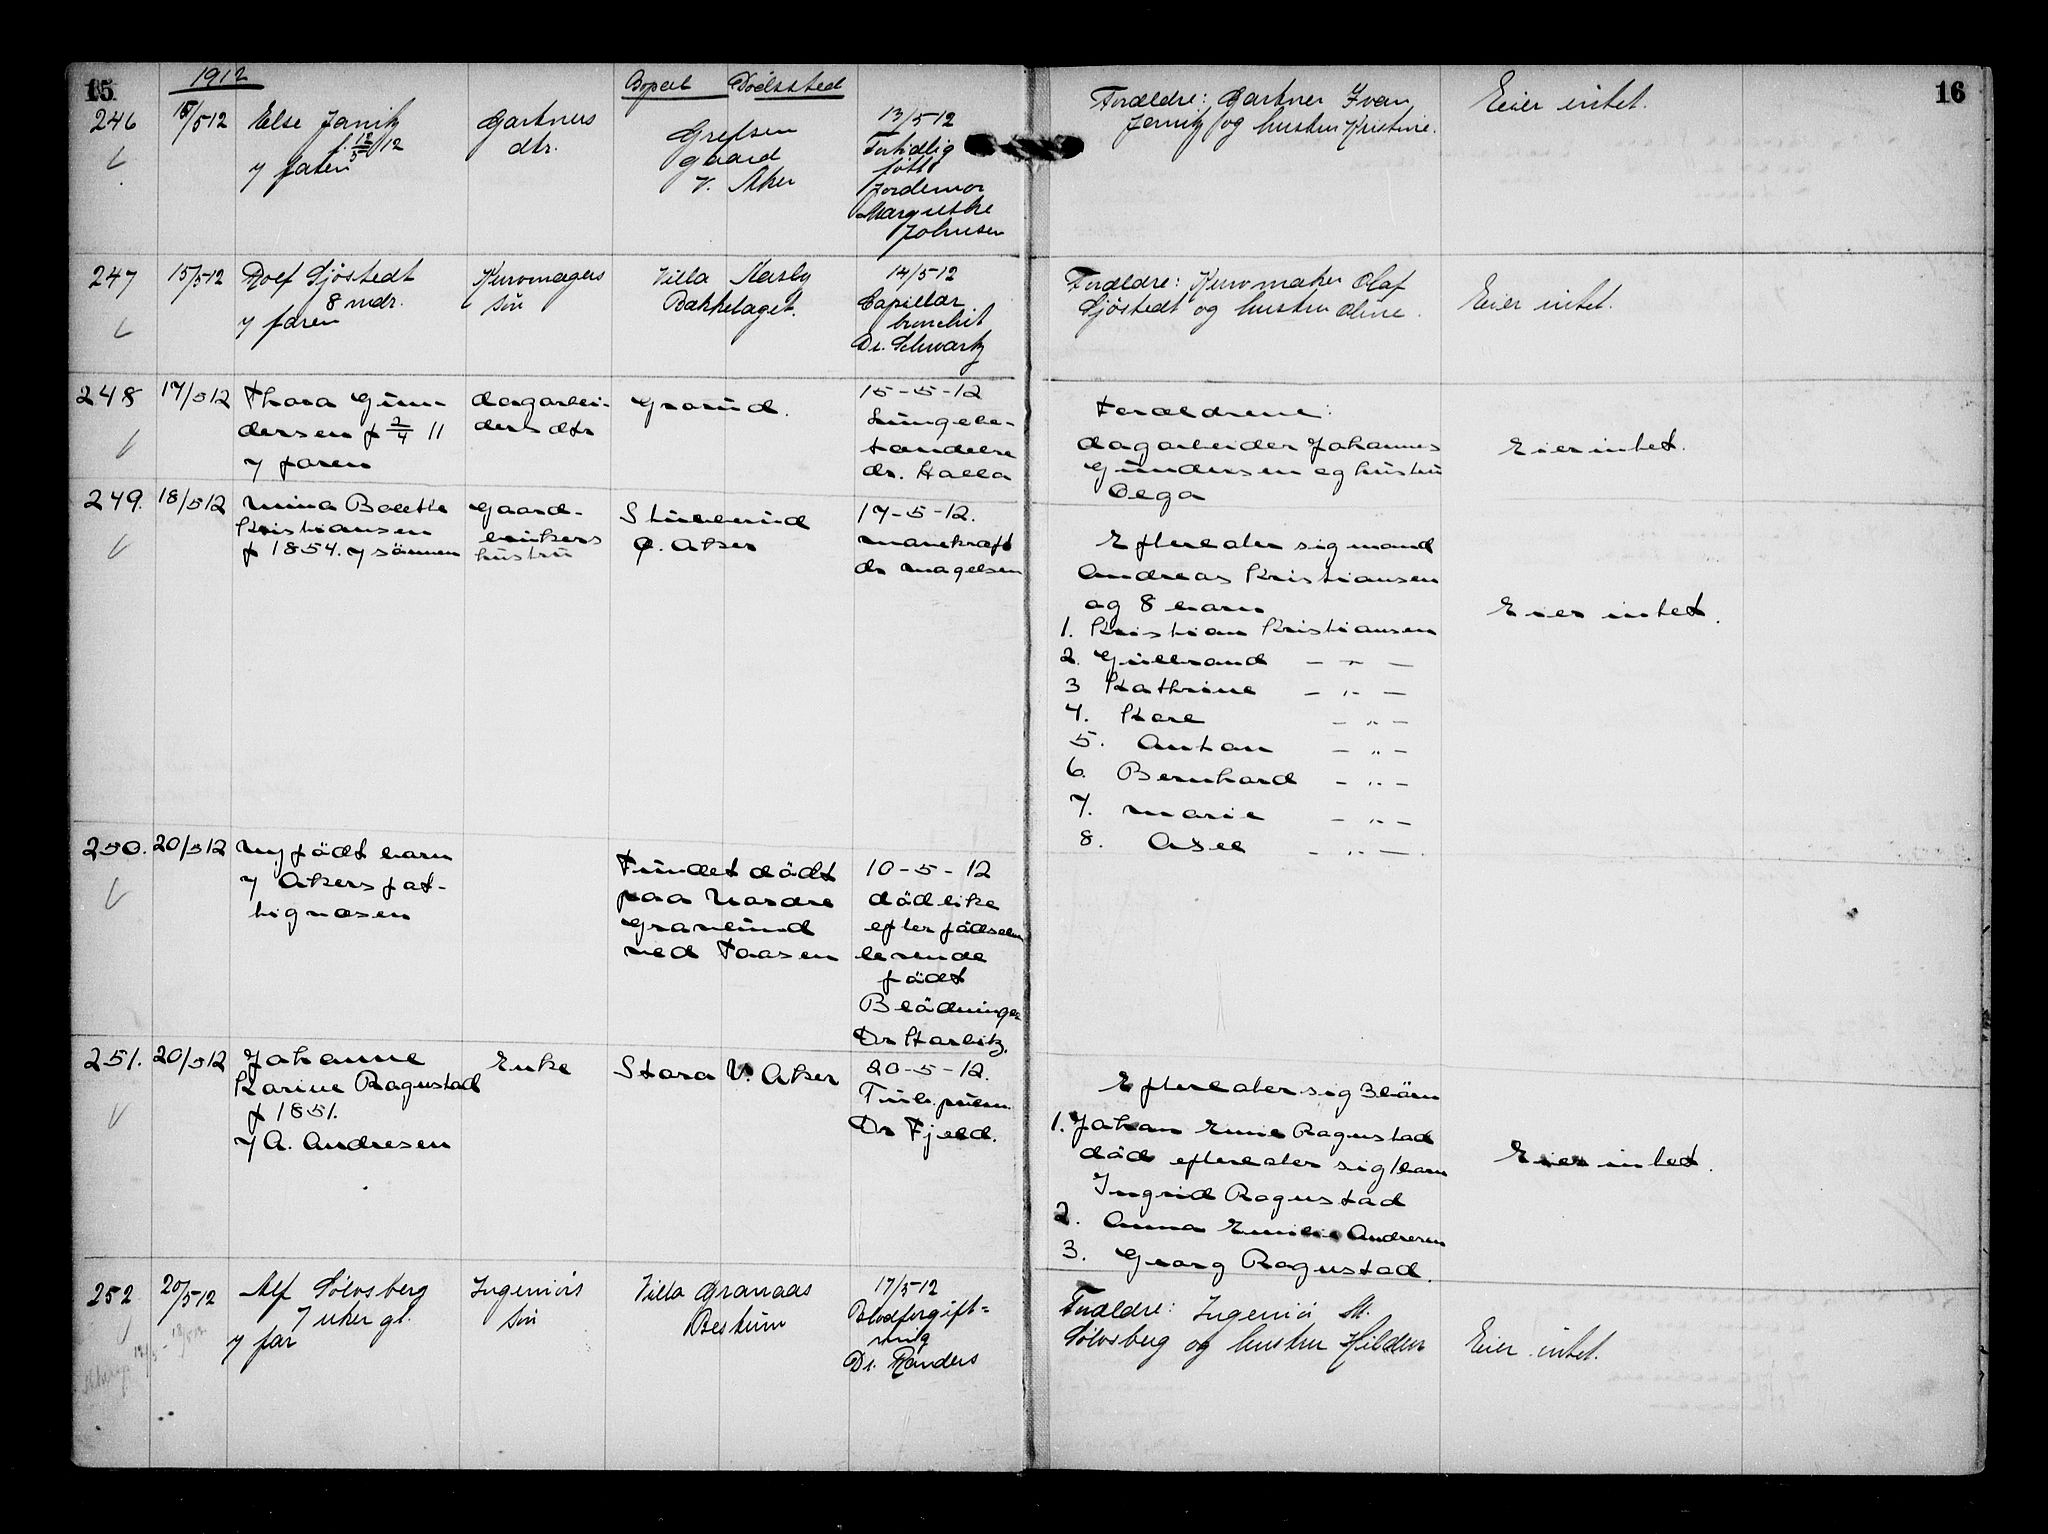 15
1912
Bopæl Dødssted
246
15/5 12
Else Jarnitz
f. 12/5 12
v/ faren
Gartners
dtr.
Grefsen
gaard
V. Aker
13/5 12
Fortidlig
født
Jordemor
Margrethe
Johnsen
Forældre: Gartner Ivar
Jarnitz og hustru Kristine.
Eier intet.
16
247
15/5 12
Rolf Sjøstedt
8 mdr.
v/ faren
Kurvmagers
søn
Villa
Bækkelaget.
14/5 12
Capillær
bronchit
Dr. Schwartz
Forældre: Kurvmaker Olaf
Sjøstedt og hustru Oline.
Eier intet.
248
17/5 12
Thora Gun-
dersen f 2/4 11
v/ faren
dagarbei-
ders dtr
Grorud.
15-5-12
Lungebe-
tændelse
dr. Halla
Forældrene:
dagarbeider Johannes
Gundersen og hustru
Olga
Eier intet.
249.
18/5 12
Mina Bolette
Kristiansen
f 1854. v/ sønnen
Gaard-
brukers
hustru
Stubberud
Ø. Aker
17-5-12.
Mavekræft
dr Magelsen
Efterlater sig mand
Andreas Kristiansen
og 8 barn
1. Kristian Kristiansen
2. Gulbrand - " -
3 Kathrine - " -
4. Kare - " -
5. Anton - " -
6. Bernhard - " -
7. Marie - " -
8. Asle - " -
Eier intet.
250.
20/5 12
Nyfødt barn
v/ Akers fat-
tigvæsen
Fundet dødt
paa Nordre
Gravlund
ved Taasen
10-5-12
død like
efter fødselen
levende
født
Blødninger
Dr Harbitz.
251.
20/5 12
Johanne
Karine Rognstad
f 1851.
v/ A. Andresen
Enke
Stora V. Aker
20-5-12.
Tub. pulm.
Dr Fjeld.
Efterlater sig 3 børn
1. Johan Emil Rognstad
død efterlater sig 1 barn
Ingrid Rognstad
2. Anna Emilie Andresen
3. Georg Rognstad.
Eier intet.
252
20/5 12
Alf Sølvsberg
7 uker gl.
v/ far
Ingeniørs
søn
Villa Granaas
Bestum
17/5 12
Blodforgift-
ning
Dr. Randers
Forældre: Ingeniør M.
Sølvsberg og hustru Hildur
Eier intet.